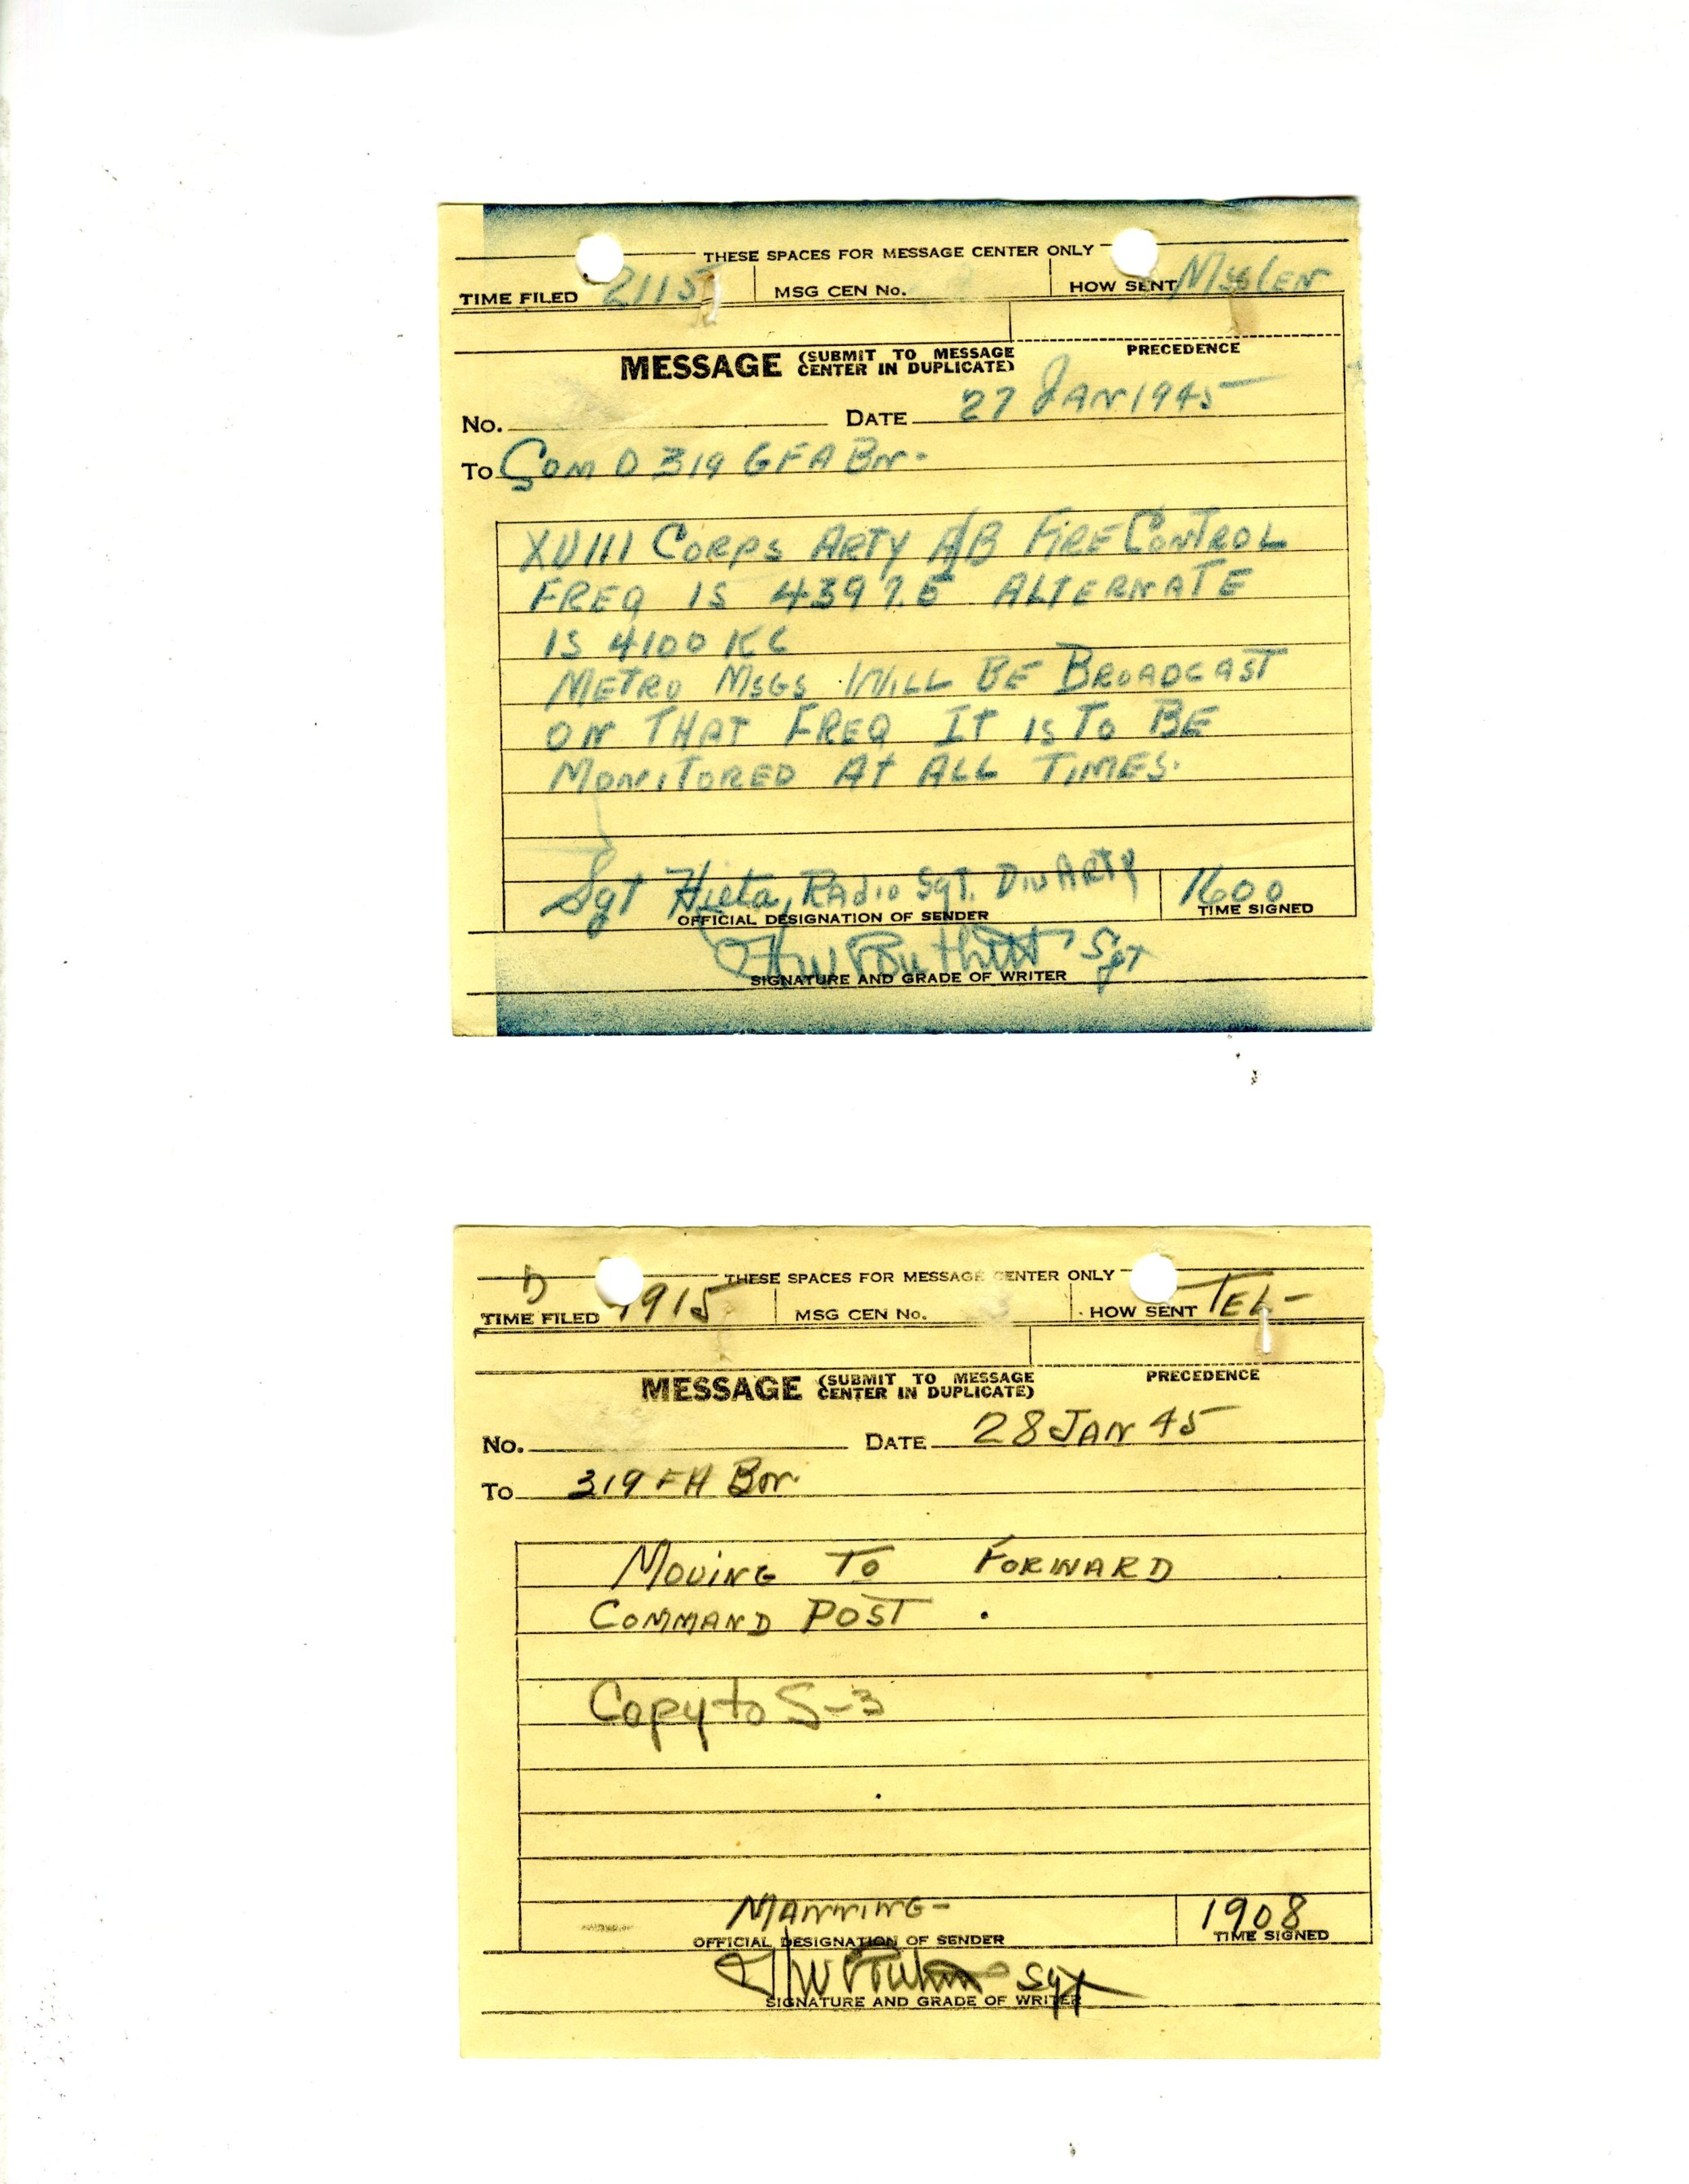 THESE SPACES FOR MESSAGE CENTER ONLY
TIME FILED 2115 MSG CEN No. HOW SENT MsgCen
PRECEDENCE
MESSAGE (SUBMIT TO MESSAGE CENTER IN DUPLICATE)
No. DATE 27 JAN 1945
To Com O 319 GFA Bn.
XVIII CORPS ARTY A/B FIRE CONTROL
FREQ IS 4397.5 ALTERNATE
IS 4100 KC
METRO MSGS WILL BE BROADCAST
ON THAT FREQ IT IS TO BE
MONITORED AT ALL TIMES.
Sgt Hieta, RADIO SGT. DIV ARTY 1600
OFFICIAL DESIGNATION OF SENDER TIME SIGNED
Sgt
SIGNATURE AND GRADE OF WRITER
THESE SPACES FOR MESSAGE CENTER ONLY
TIME FILED 1915 MSG CEN No. HOW SENT TEL-
PRECEDENCE
MESSAGE (SUBMIT TO MESSAGE CENTER IN DUPLICATE)
No. DATE 28 JAN 45
To 319 FA Bn.
MOVING TO FORWARD
COMMAND POST.
Copy to S-3
MANNING- 1908
OFFICIAL DESIGNATION OF SENDER TIME SIGNED
Sgt
SIGNATURE AND GRADE OF WRITER